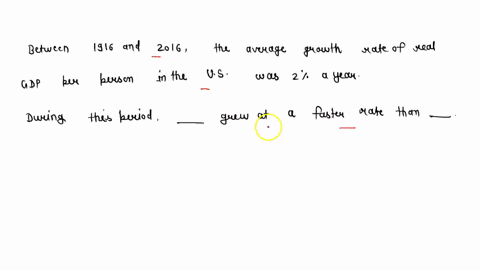 Between 1916 and 2016, the average growth rate of real
GDP per person in the U.S. was 2% a year.
During this period, ___ grew at a faster rate than ___.